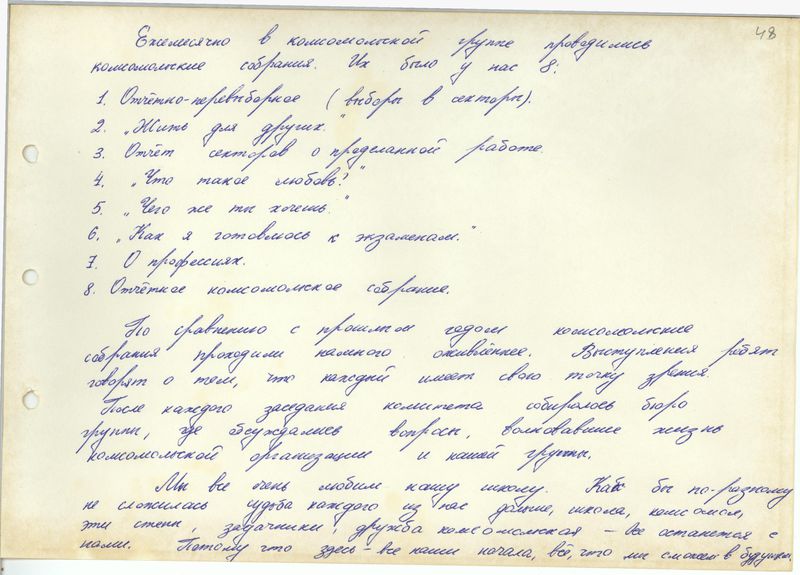 48
Ежемесячно в комсомольской группе проводились
комсомольские собрания. Их было у нас 8:
1. Отчётно-перевыборное (выборы в секторы).
2. „Жить для других."
3. Отчёт секторов о проделанной работе.
4. „Что такое любовь?"
5. „Чего же ты хочешь."
6. „Как я готовлюсь к экзаменам."
7. О профессиях.
8. Отчётное комсомольское собрание.
По сравнению с прошлым годом комсомольские
собрания проходили намного оживлённее. Выступления ребят
говорят о том, что каждый имеет свою точку зрения.
После каждого заседания комитета собиралось бюро
группы, где обсуждались вопросы, волновавшие жизнь
комсомольской организации и нашей группы.
Мы все очень любим нашу школу. Как бы по-разному
не сложилась судьба каждого из нас дальше, школа, комсомол,
эти стены, задачники, дружба комсомольская – всё останется с
нами. Потому что здесь – все наши начала, всё, что мы сможем в будущем,